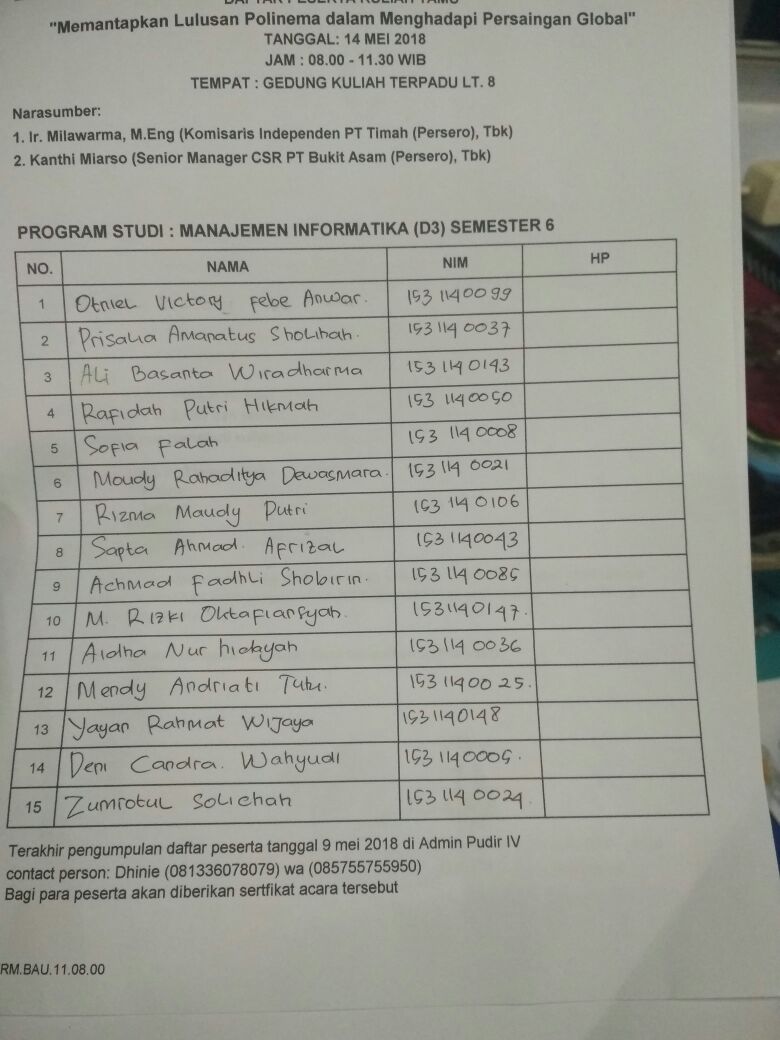 DAFTAR PESERTA KULIAH TAMU
"Memantapkan Lulusan Polinema dalam Menghadapi Persaingan Global"
TANGGAL: 14 MEI 2018
JAM : 08.00 - 11.30 WIB
TEMPAT : GEDUNG KULIAH TERPADU LT. 8
Narasumber:
1. Ir. Milawarma, M.Eng (Komisaris Independen PT Timah (Persero), Tbk)
2. Kanthi Miarso (Senior Manager CSR PT Bukit Asam (Persero), Tbk)
PROGRAM STUDI : MANAJEMEN INFORMATIKA (D3) SEMESTER 6
NO. NAMA NIM HP
1 Otniel Victory Febe Anwar. 1531140099
2 Prisalia Amanatus Sholihah. 1531140037
3 Ali Basanta Wiradharma 1531140143
4 Rafidah Putri Hikmah 1531140050
5 Sofia Falah 1531140008
6 Moudy Rahaditya Dewasmara. 1531140021
7 Rizma Maudy Putri 1531140106
8 Sapta Ahmad. Afrizal 1531140043
9 Achmad Fadhli Shobirin. 1531140085
10 M. Rizki Oktafiansyah. 1531140147.
11 Aidha Nur hidayah 1531140036
12 Mendy Andriati Tutu. 1531140025.
13 Yayan Rahmat Wijaya 1531140148
14 Deni Candra. Wahyudi 1531140005.
15 Zumrotul Solichah 1531140024.
Terakhir pengumpulan daftar peserta tanggal 9 mei 2018 di Admin Pudir IV
contact person: Dhinie (081336078079) wa (085755755950)
Bagi para peserta akan diberikan sertfikat acara tersebut
RM.BAU.11.08.00